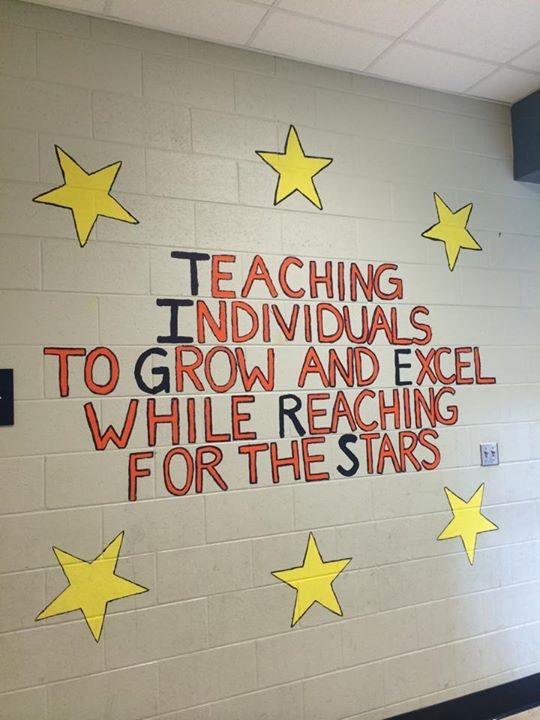 TEACHING
INDIVIDUALS
TO GROW AND EXCEL
WHILE REACHING
FOR THE STARS